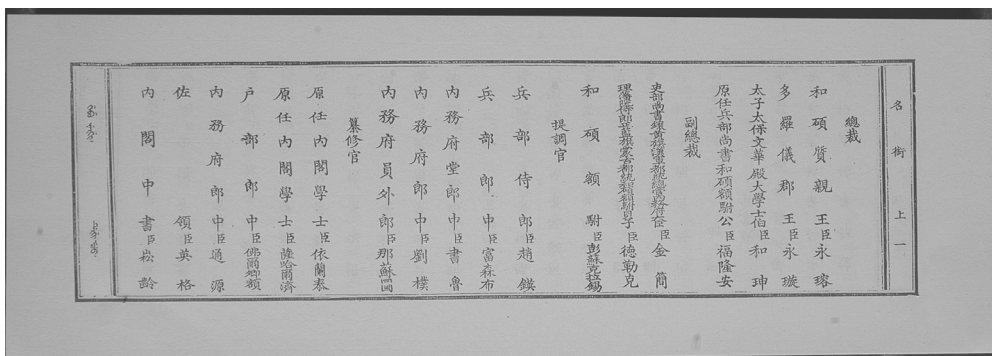 名銜 上一
總裁
和碩質親王臣永瑢
多羅儀郡王臣永璇
太子太保文華殿大學士伯臣和珅
原任兵部尚書和碩額駙公臣福隆安
副總裁
吏部尚書鑲黃旗漢軍都統總管內務府大臣臣金簡
理藩院侍郎正藍旗蒙古都統額駙貝子臣德勒克
和碩額駙臣彭蘇克拉錫
提調官
兵部侍郎趙鍈
兵部郎中臣富森布
內務府堂郎中臣書魯
內務府郎中臣劉樸
內務府員外郎臣那蘇圖
纂修官
原任內閣學士臣依蘭泰
原任內閣學士臣薩哈爾濟
戶部郎中臣佛爾卿額
內務府郎中臣通源
佐領臣英格
內閣中書臣崧齡